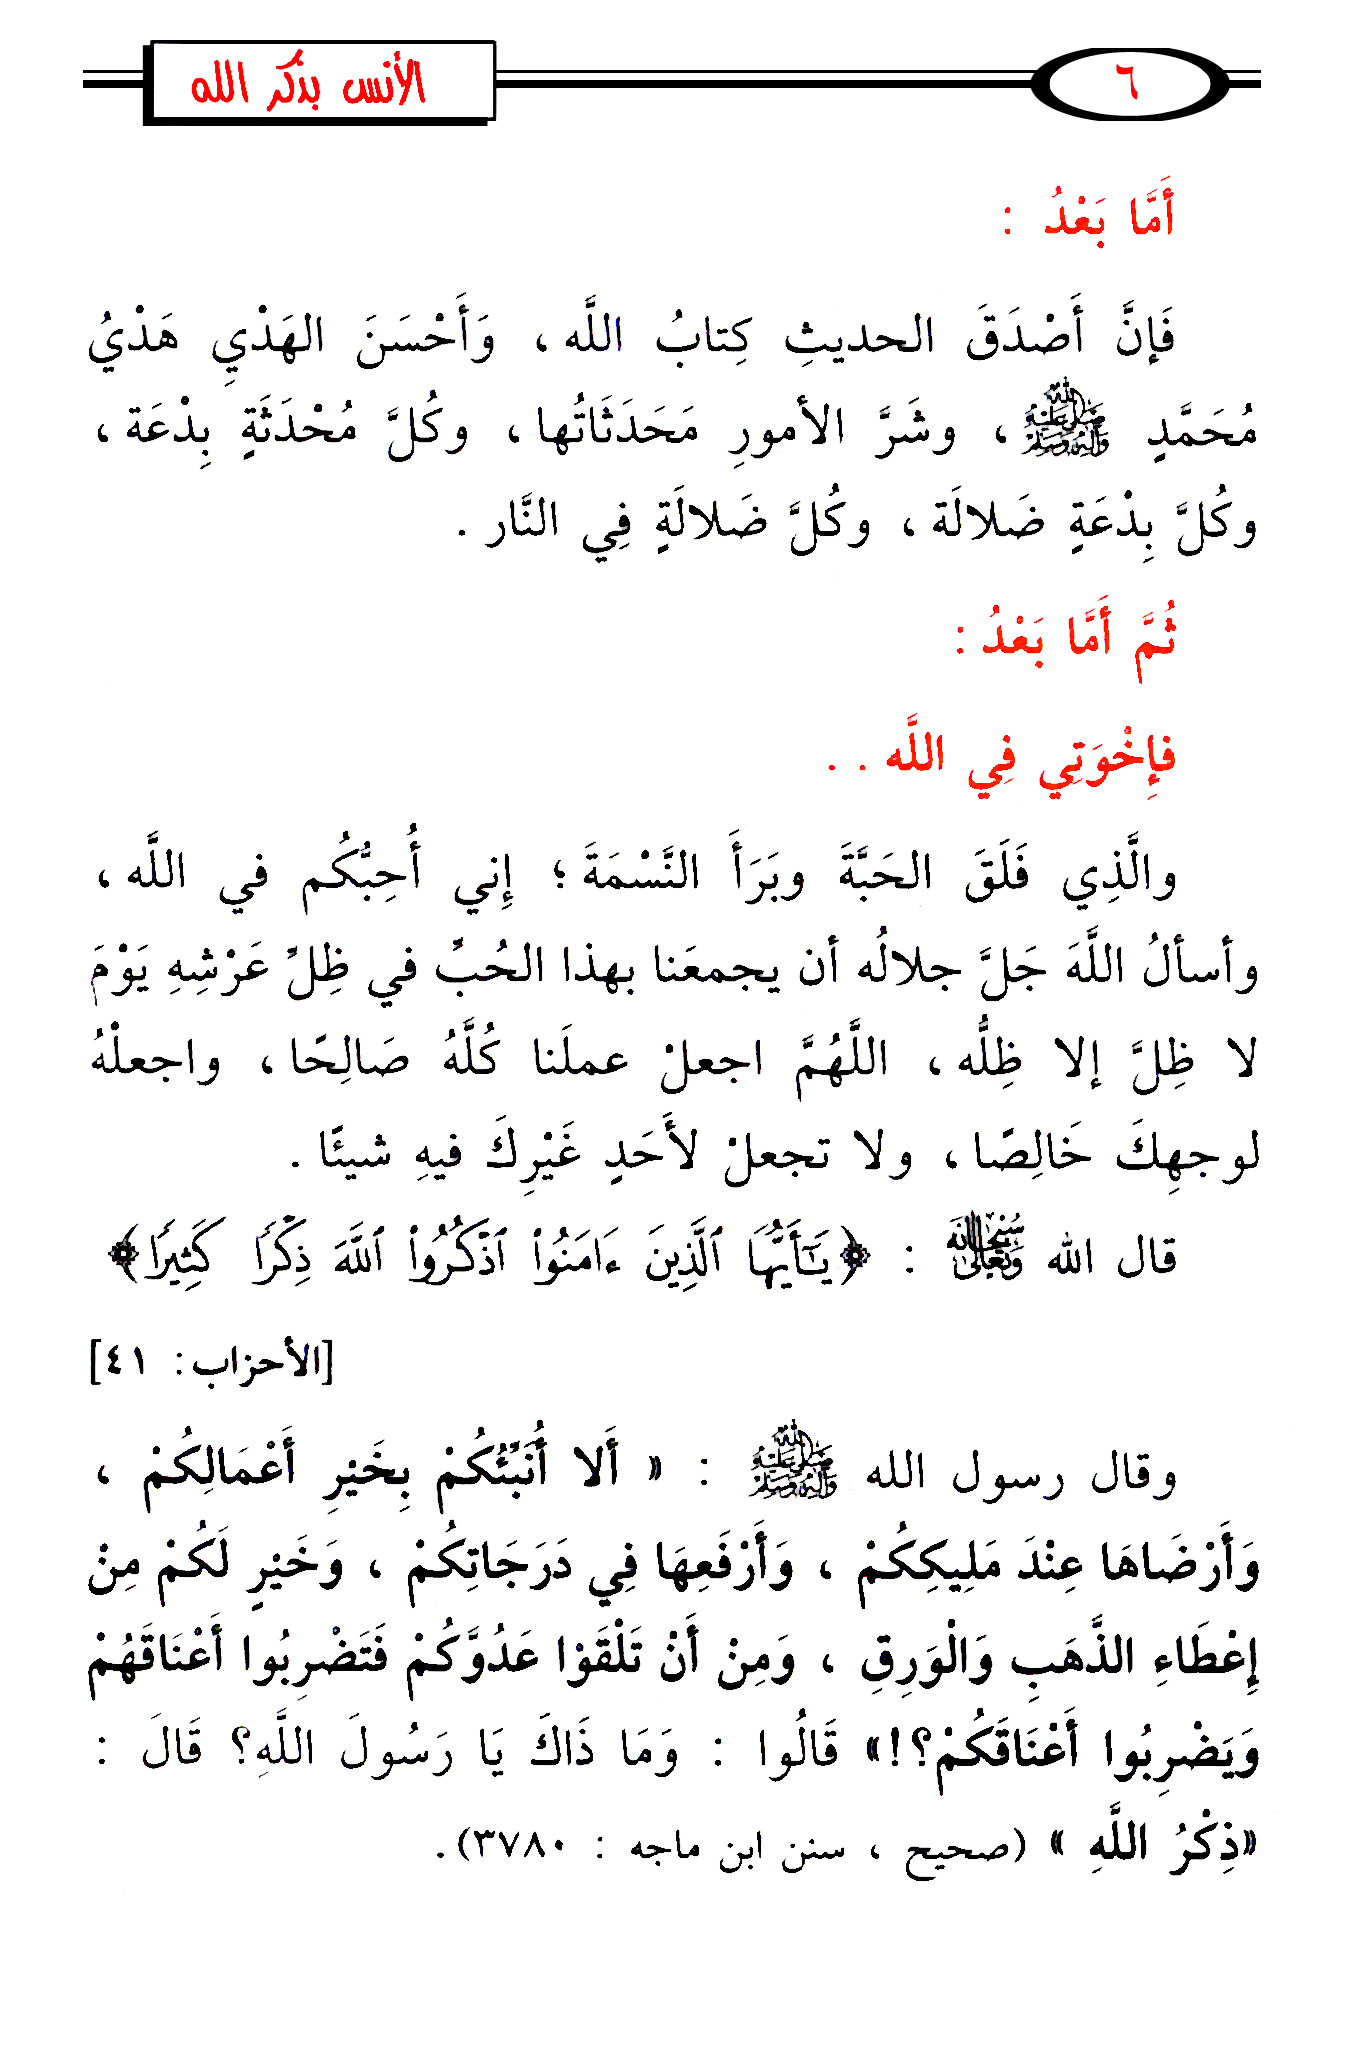 ٦
الأنس بذكر الله
أَمَّا بَعْدُ :
فَإِنَّ أَصْدَقَ الحديثِ كِتابُ اللَّه، وَأَحْسَنَ الهَدْيِ هَدْيُ
مُحَمَّدٍ ﷺ، وشَرَّ الأمورِ مَحَدَثَاتُها، وكُلَّ مُحْدَثَةٍ بِدْعَة،
وكُلَّ بِدْعَةٍ ضَلالَة، وكُلَّ ضَلالَةٍ فِي النَّار .
ثُمَّ أَمَّا بَعْدُ :
فإِخْوَتِي فِي اللَّه . .
والَّذِي فَلَقَ الحَبَّةَ وبَرَأَ النَّسْمَةَ؛ إِني أُحِبُّكُم في اللَّه،
وأسألُ اللَّهَ جَلَّ جلالُه أن يجمعَنا بهذا الحُبِّ في ظِلِّ عَرْشِهِ يَوْمَ
لا ظِلَّ إلا ظِلُّه، اللَّهُمَّ اجعلْ عملَنا كُلَّهُ صَالِحًا، واجعلْهُ
لوجهِكَ خَالِصًا، ولا تجعلْ لأَحَدٍ غَيْرِكَ فيهِ شيئًا .
قال الله سُبْحَانَهُ وَتَعَالَى : ﴿يَـٰٓأَيُّهَا ٱلَّذِينَ ءَامَنُوا۟ ٱذْكُرُوا۟ ٱللَّهَ ذِكْرًا كَثِيرًا﴾
[الأحزاب: ٤١]
وقال رسول الله ﷺ : « أَلا أُنَبِّئُكُمْ بِخَيْرِ أَعْمَالِكُمْ ،
وَأَرْضَاهَا عِنْدَ مَلِيكِكُمْ ، وَأَرْفَعِهَا فِي دَرَجَاتِكُمْ ، وَخَيْرٍ لَكُمْ مِنْ
إِعْطَاءِ الذَّهَبِ وَالْوَرِقِ ، وَمِنْ أَنْ تَلْقَوْا عَدُوَّكُمْ فَتَضْرِبُوا أَعْنَاقَهُمْ
وَيَضْرِبُوا أَعْنَاقَكُمْ؟!» قَالُوا : وَمَا ذَاكَ يَا رَسُولَ اللَّهِ؟ قَالَ :
«ذِكْرُ اللَّهِ » (صحيح ، سنن ابن ماجه : ٣٧٨٠).